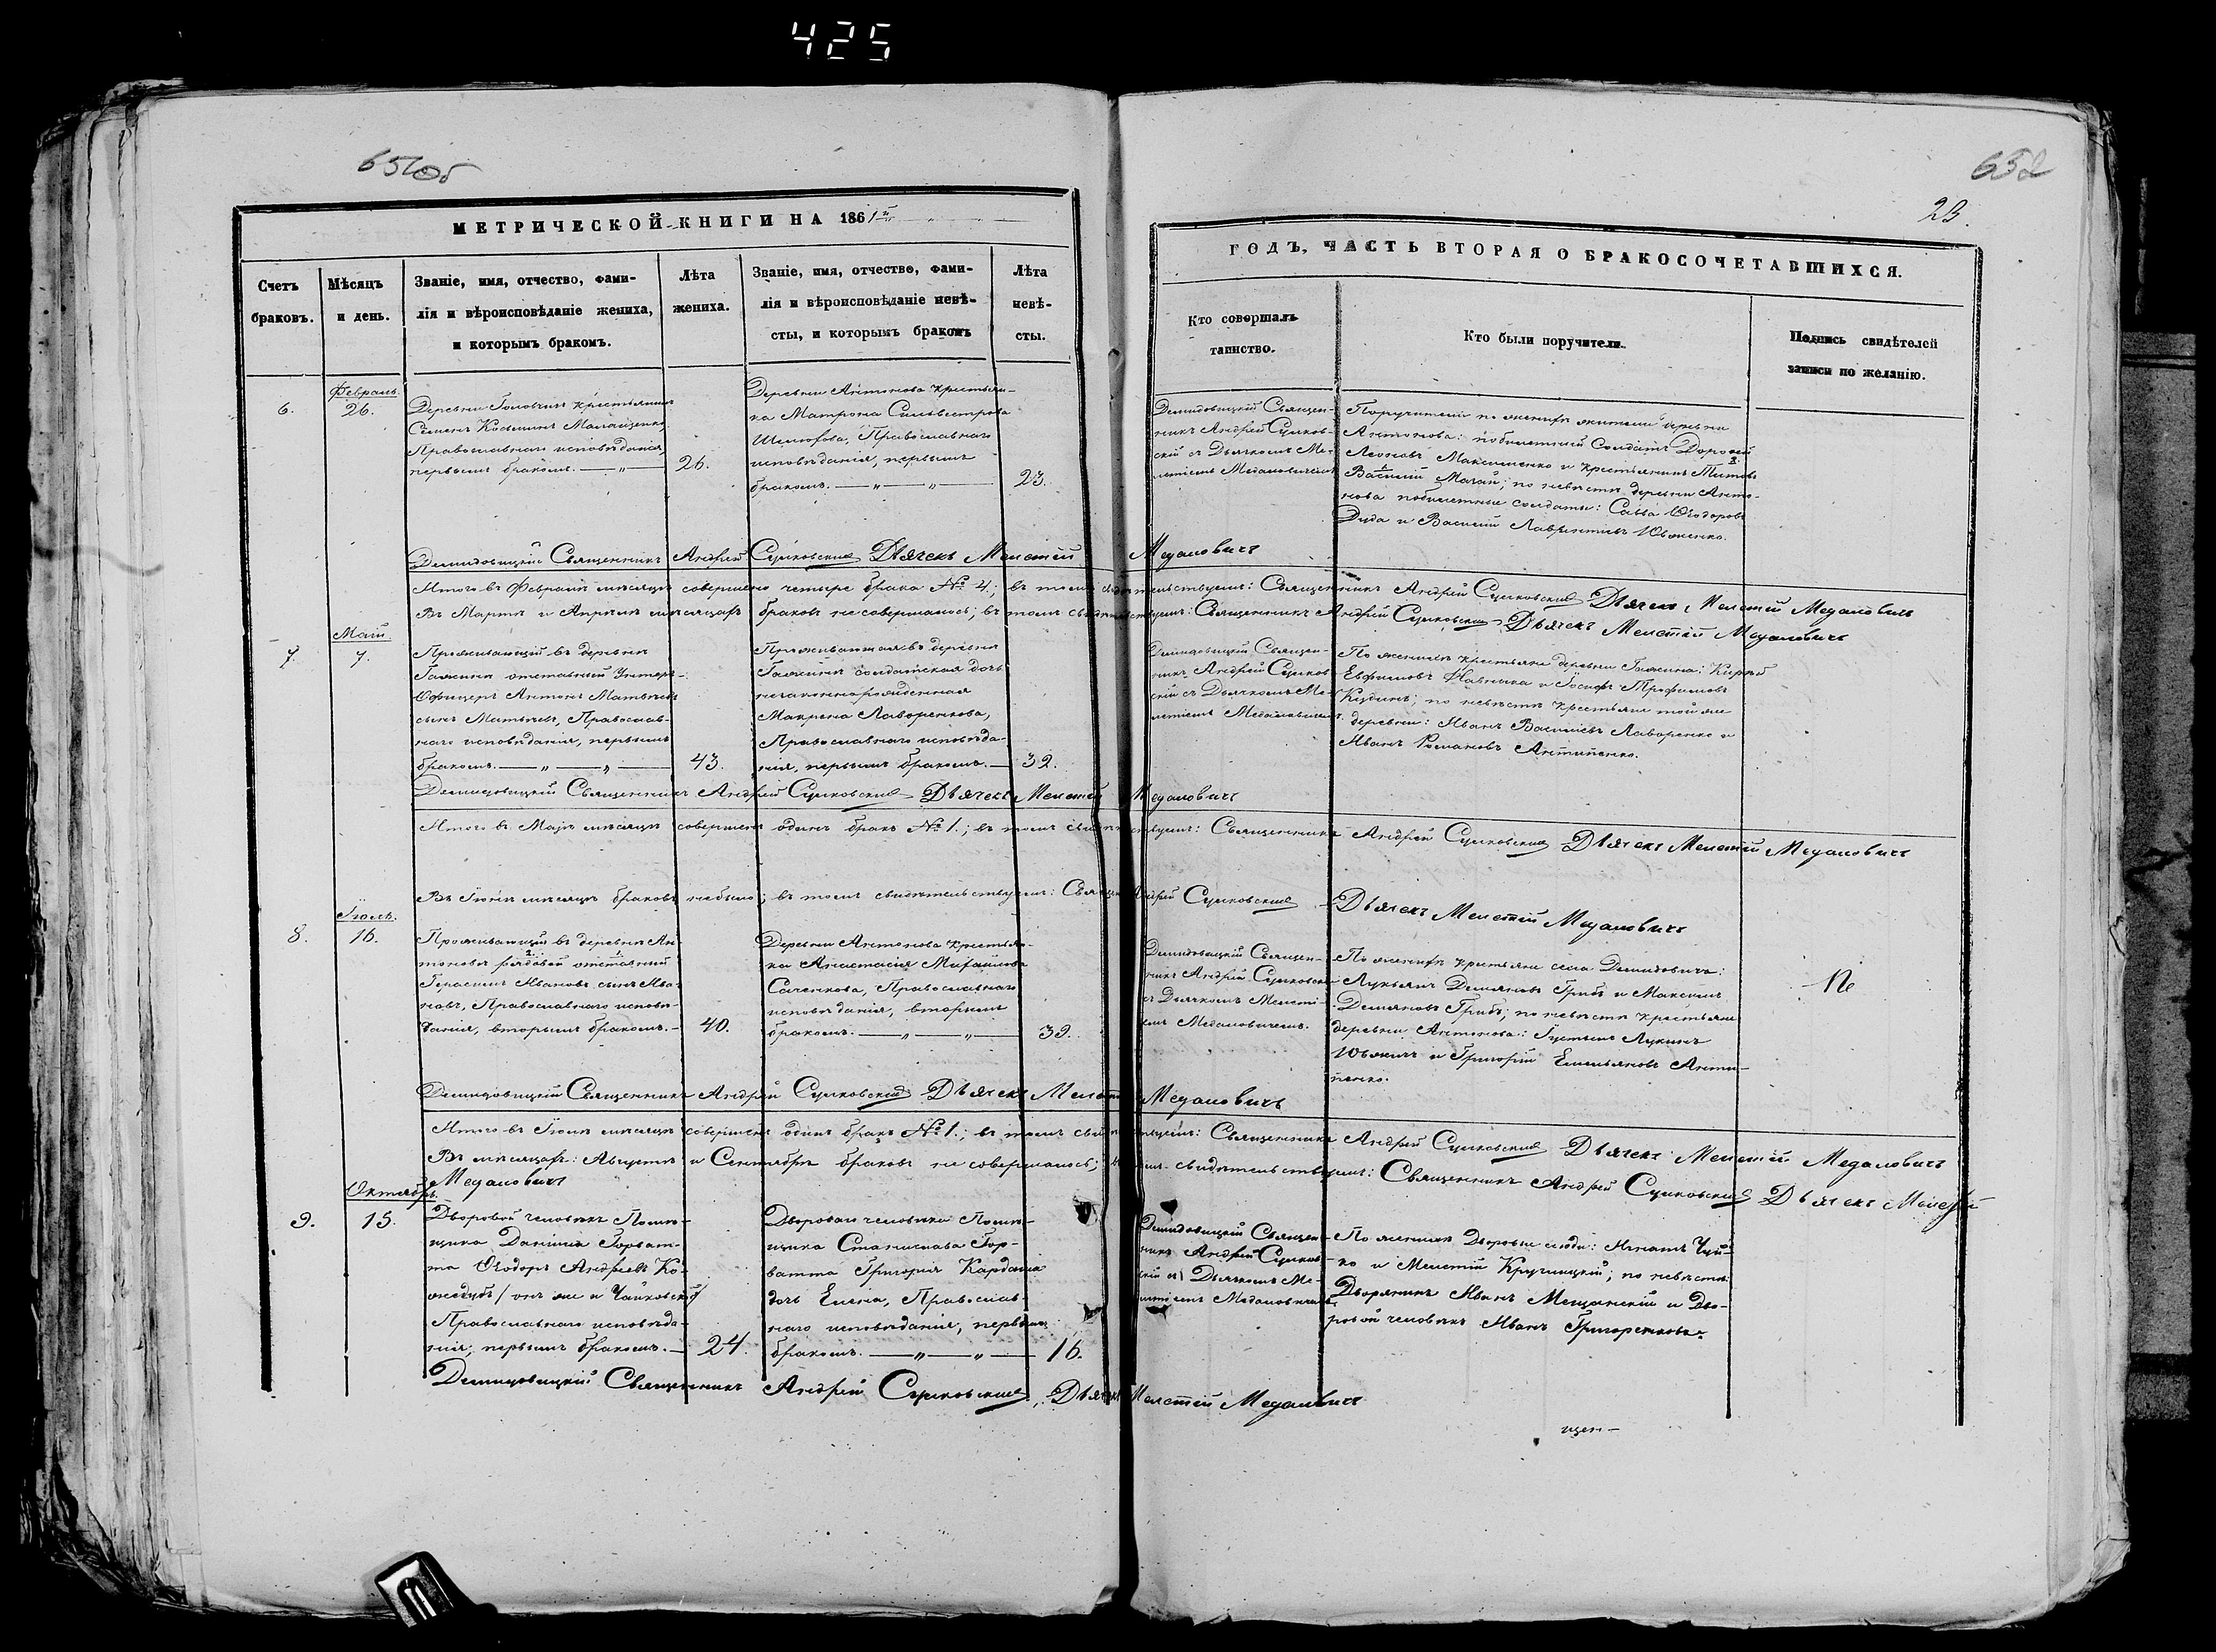 425
651об
652
23.
МЕТРИЧЕСКОЙ КНИГИ НА 1861й
ГОДЪ, ЧАСТЬ ВТОРАЯ О БРАКОСОЧЕТАВШИХСЯ.
Счетъ
браковъ.
Мѣсяцъ
и день.
Званіе, имя, отчество, фами-
лія и вѣроисповѣданіе жениха,
и которымъ бракомъ.
Лѣта
жениха.
Званіе, имя, отчество, фами-
лія и вѣроисповѣданіе невѣ-
сты, и которымъ бракомъ
Лѣта
невѣ-
сты.
Кто совершалъ
таинство.
Кто были поручители.
Подпись свидѣтелей
записи по желанію.
6.
Февраль.
26.
Деревни Головчиц крестьянинъ
Семенъ Косминъ
Православнаго исповѣданія,
первымъ бракомъ. — „ —
26.
Деревни Антонова крестьян-
ка Матрона Сильвестрова
Православнаго
исповѣданія, первымъ
бракомъ. — „ — „ —
23.
Демидовицкій Священ-
никъ Андрей Сулков-
скій съ Дьячкомъ Ме-
летіемъ Медаловичемъ
Поручители по женихѣ жители деревни
Антонова: побилетный Солдатъ Дорофей
Леоновъ Максименко и крестьянинъ Титовъ
Василий Мачай; по невѣстѣ деревни Анто-
нова побилетные солдаты: Савва Ѳеодоровъ
Дуда и Василій Лаврентіевъ Ювженко.
Демидовицкій Священникъ Андрей Сулковскій Дьячекъ Мелетій Медаловичъ
Итого въ Февралѣ мѣсяцѣ совершено четыре брака № 4; въ томъ свидѣтельствуемъ: Священникъ Андрей Сулковскій Дьячекъ Мелетій Медаловичъ
Въ Мартѣ и Апрѣлѣ мѣсяцахъ браковъ не совершалось; въ томъ свидѣтельствуемъ: Священникъ Андрей Сулковскій Дьячекъ Мелетій Медаловичъ
7.
Май.
7.
Проживающій въ деревни
Гажинѣ отставный Унтеръ-
Офицеръ Антонъ Матвѣевъ
сынъ Матвѣевъ, Православ-
наго исповѣданія, первымъ
бракомъ. — „ — „ —
43.
Проживающая въ деревни
Гажинѣ солдатская дочь
незаконнорожденная
Макрена Лаворенкова,
Православнаго исповѣда-
нія, первымъ бракомъ. —
32.
Демидовицкій Священ-
никъ Андрей Сулков-
скій съ Дьячкомъ Ме-
летіемъ Медаловичемъ
По женихѣ крестьяне деревни Гажина: Кирилъ
Евфимовъ Навныка и Іосифъ Трофимовъ
Кудинъ; по невѣстѣ крестьяне той же
деревни: Иванъ Василіевъ Лаворенко и
Иванъ Романовъ Антипенко.
Демидовицкій Священникъ Андрей Сулковскій Дьячекъ Мелетій Медаловичъ
Итого въ Маѣ мѣсяцѣ совершенъ одинъ бракъ № 1.; въ томъ свидѣтельствуемъ: Священникъ Андрей Сулковскій Дьячекъ Мелетій Медаловичъ
Въ Іюнѣ мѣсяцѣ браковъ небыло; въ томъ свидѣтельствуемъ: Священникъ Андрей Сулковскій Дьячекъ Мелетій Медаловичъ
8.
Іюль.
16.
Проживающій въ деревни Ан-
тоновѣ рядовой отставный
Герасимъ Ивановъ сынъ Ива-
новъ, Православнаго исповѣ-
данія, вторымъ бракомъ. —
40.
Деревни Антонова крестьян-
ка Анастасія Михайлова
Саченкова, Православнаго
исповѣданія, вторымъ
бракомъ. — „ — „ —
39.
Демидовицкій Священ-
никъ Андрей Сулковскій
съ Дьячкомъ Мелеті-
емъ Медаловичемъ.
По женихѣ крестьяне села Демидовичъ:
Лукьянъ Демьяновъ Грибъ и Максимъ
Демьяновъ Грибъ; по невѣстѣ крестьяне
деревни Антонова: Густынъ Лукинъ
Ювженъ и Григорій Емельяновъ Анти-
пенко.
Не
Демидовицкій Священникъ Андрей Сулковскій Дьячекъ Мелетій Медаловичъ
Итого въ Іюлѣ мѣсяцѣ совершенъ одинъ бракъ № 1.; въ томъ свидѣтельствуемъ: Священникъ Андрей Сулковскій Дьячекъ Мелетій Медаловичъ
Въ мѣсяцахъ: Августѣ и Сентябрѣ браковъ не совершалось; въ томъ свидѣтельствуемъ: Священникъ Андрей Сулковскій Дьячекъ Мелетій
Медаловичъ
9.
Октябрь.
15.
Дворовой человѣкъ Помѣ-
щика Даніила Горват-
та Ѳеодоръ Андреевъ Ко-
жедубъ /онъ же и Чайковскій/
Православнаго исповѣда-
нія, первымъ бракомъ. —
24.
Двороваго человѣка Помѣ-
щика Станислава Гор-
ватта Григорія Кардаша
дочь Елена, Православ-
наго исповѣданія, первымъ
бракомъ. — „ — „ —
16.
Демидовицкій Священ-
никъ Андрей Сулков-
скій съ Дьячкомъ Ме-
летіемъ Медаловичемъ
По женихѣ Дворовые люди: Игнатъ Чуй-
ко и Мелетій Кручицкій; по невѣстѣ:
Дворянинъ Иванъ Мещанскій и Дво-
ровой человѣкъ Иванъ Григоренковъ.
Демидовицкій Священникъ Андрей Сулковскій, Дьячекъ Мелетій Медаловичъ
щен-